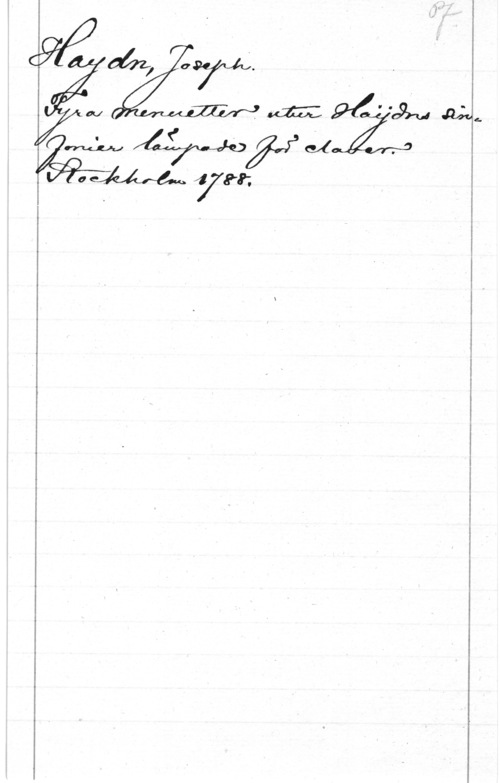 Pf.
Haydn, Joseph.
Fyra menuetter utur Haijdns sin-
fonier lämpade för claver.
Stockholm 1788.